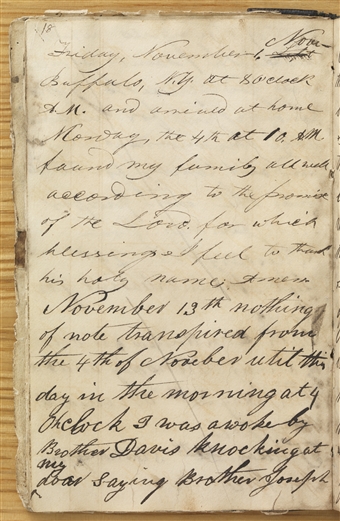 18
Friday, November 1, from
Buffalo, N.Y. at 8 o'clock
A.M. and arrived at home
Monday, the 4th at 10, A.M.
found my family all well
according to the promise
of the Lord. for which
blessings I feel to thank
his holy name; Amen
November 13th nothing
of note transpired from
the 4th of Noveber util this
day in the morning at 4
Oh clock I was awoke by
Brother Davis knocking at
my
door saying Brother Joseph